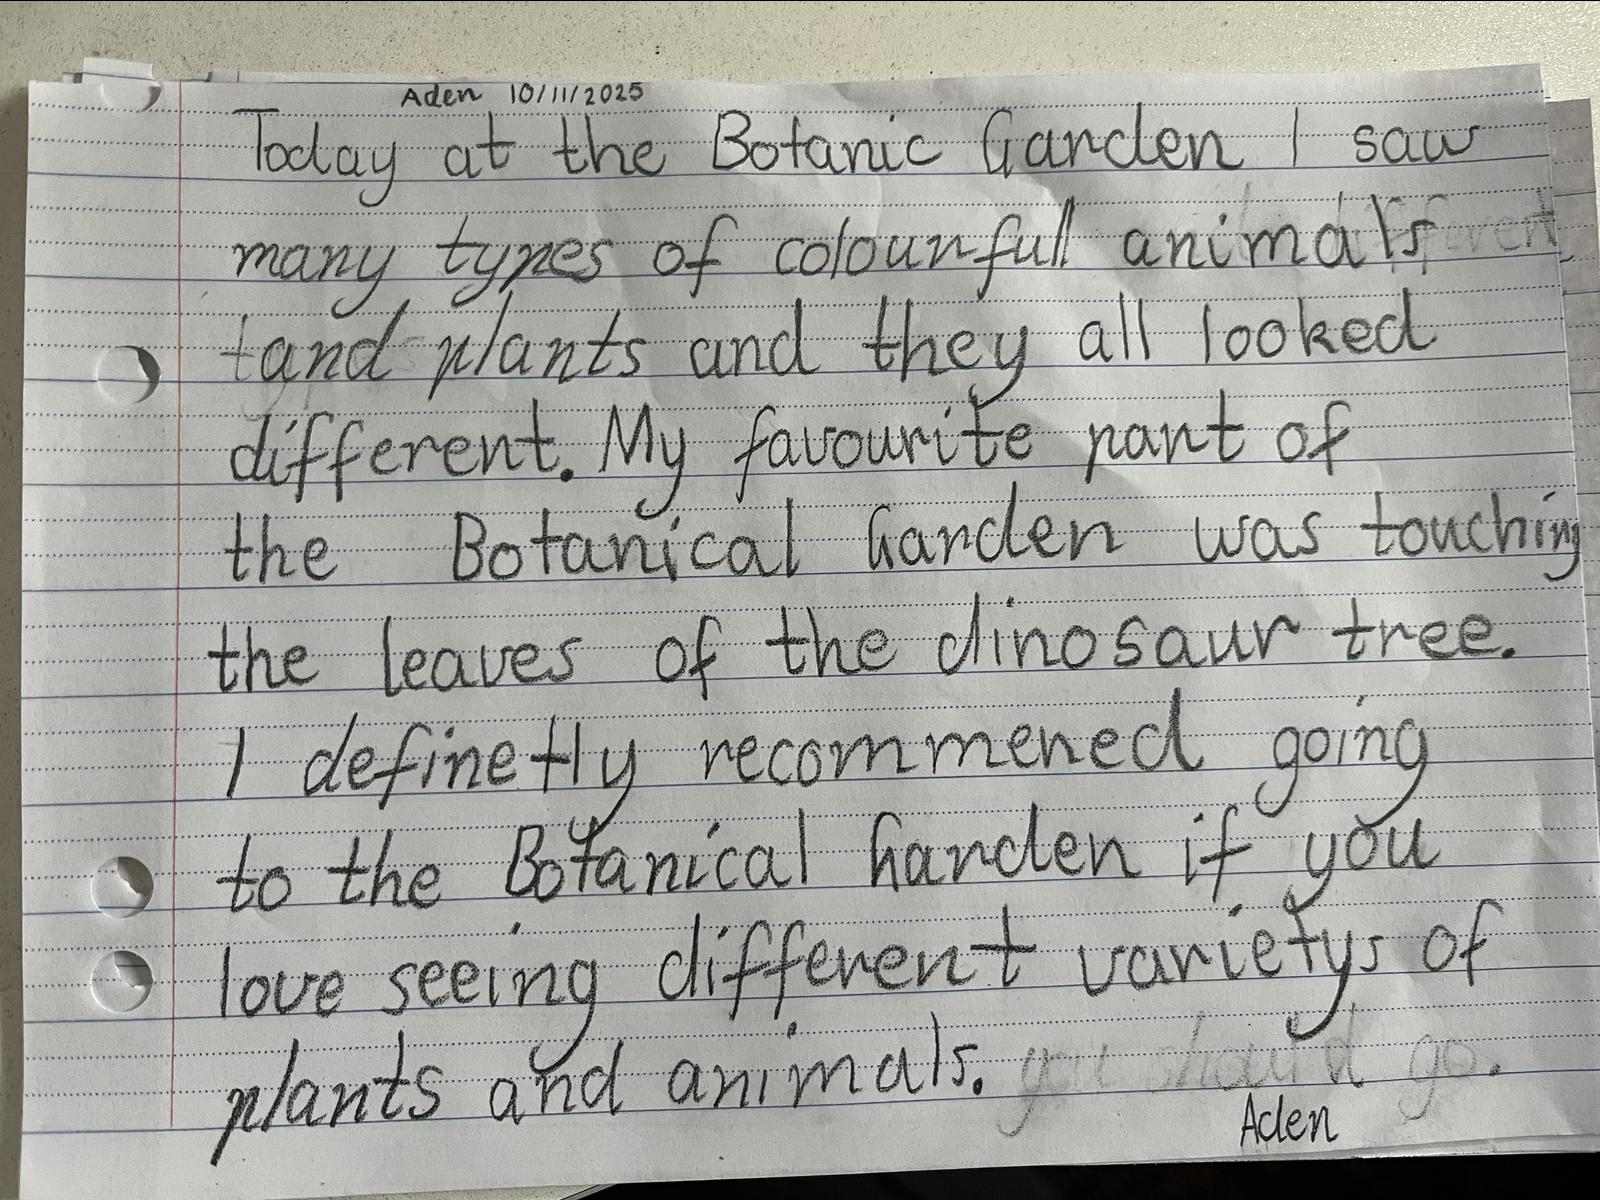 Aden 10/11/2025
Today at the Botanic Garden I saw
many types of colourfull animals
and plants and they all looked
different. My favourite part of
the Botanical Garden was touching
the leaves of the dinosaur tree.
I definetly recommened going
to the Botanical Garden if you
love seeing different varietys of
plants and animals. you should go.
Aden